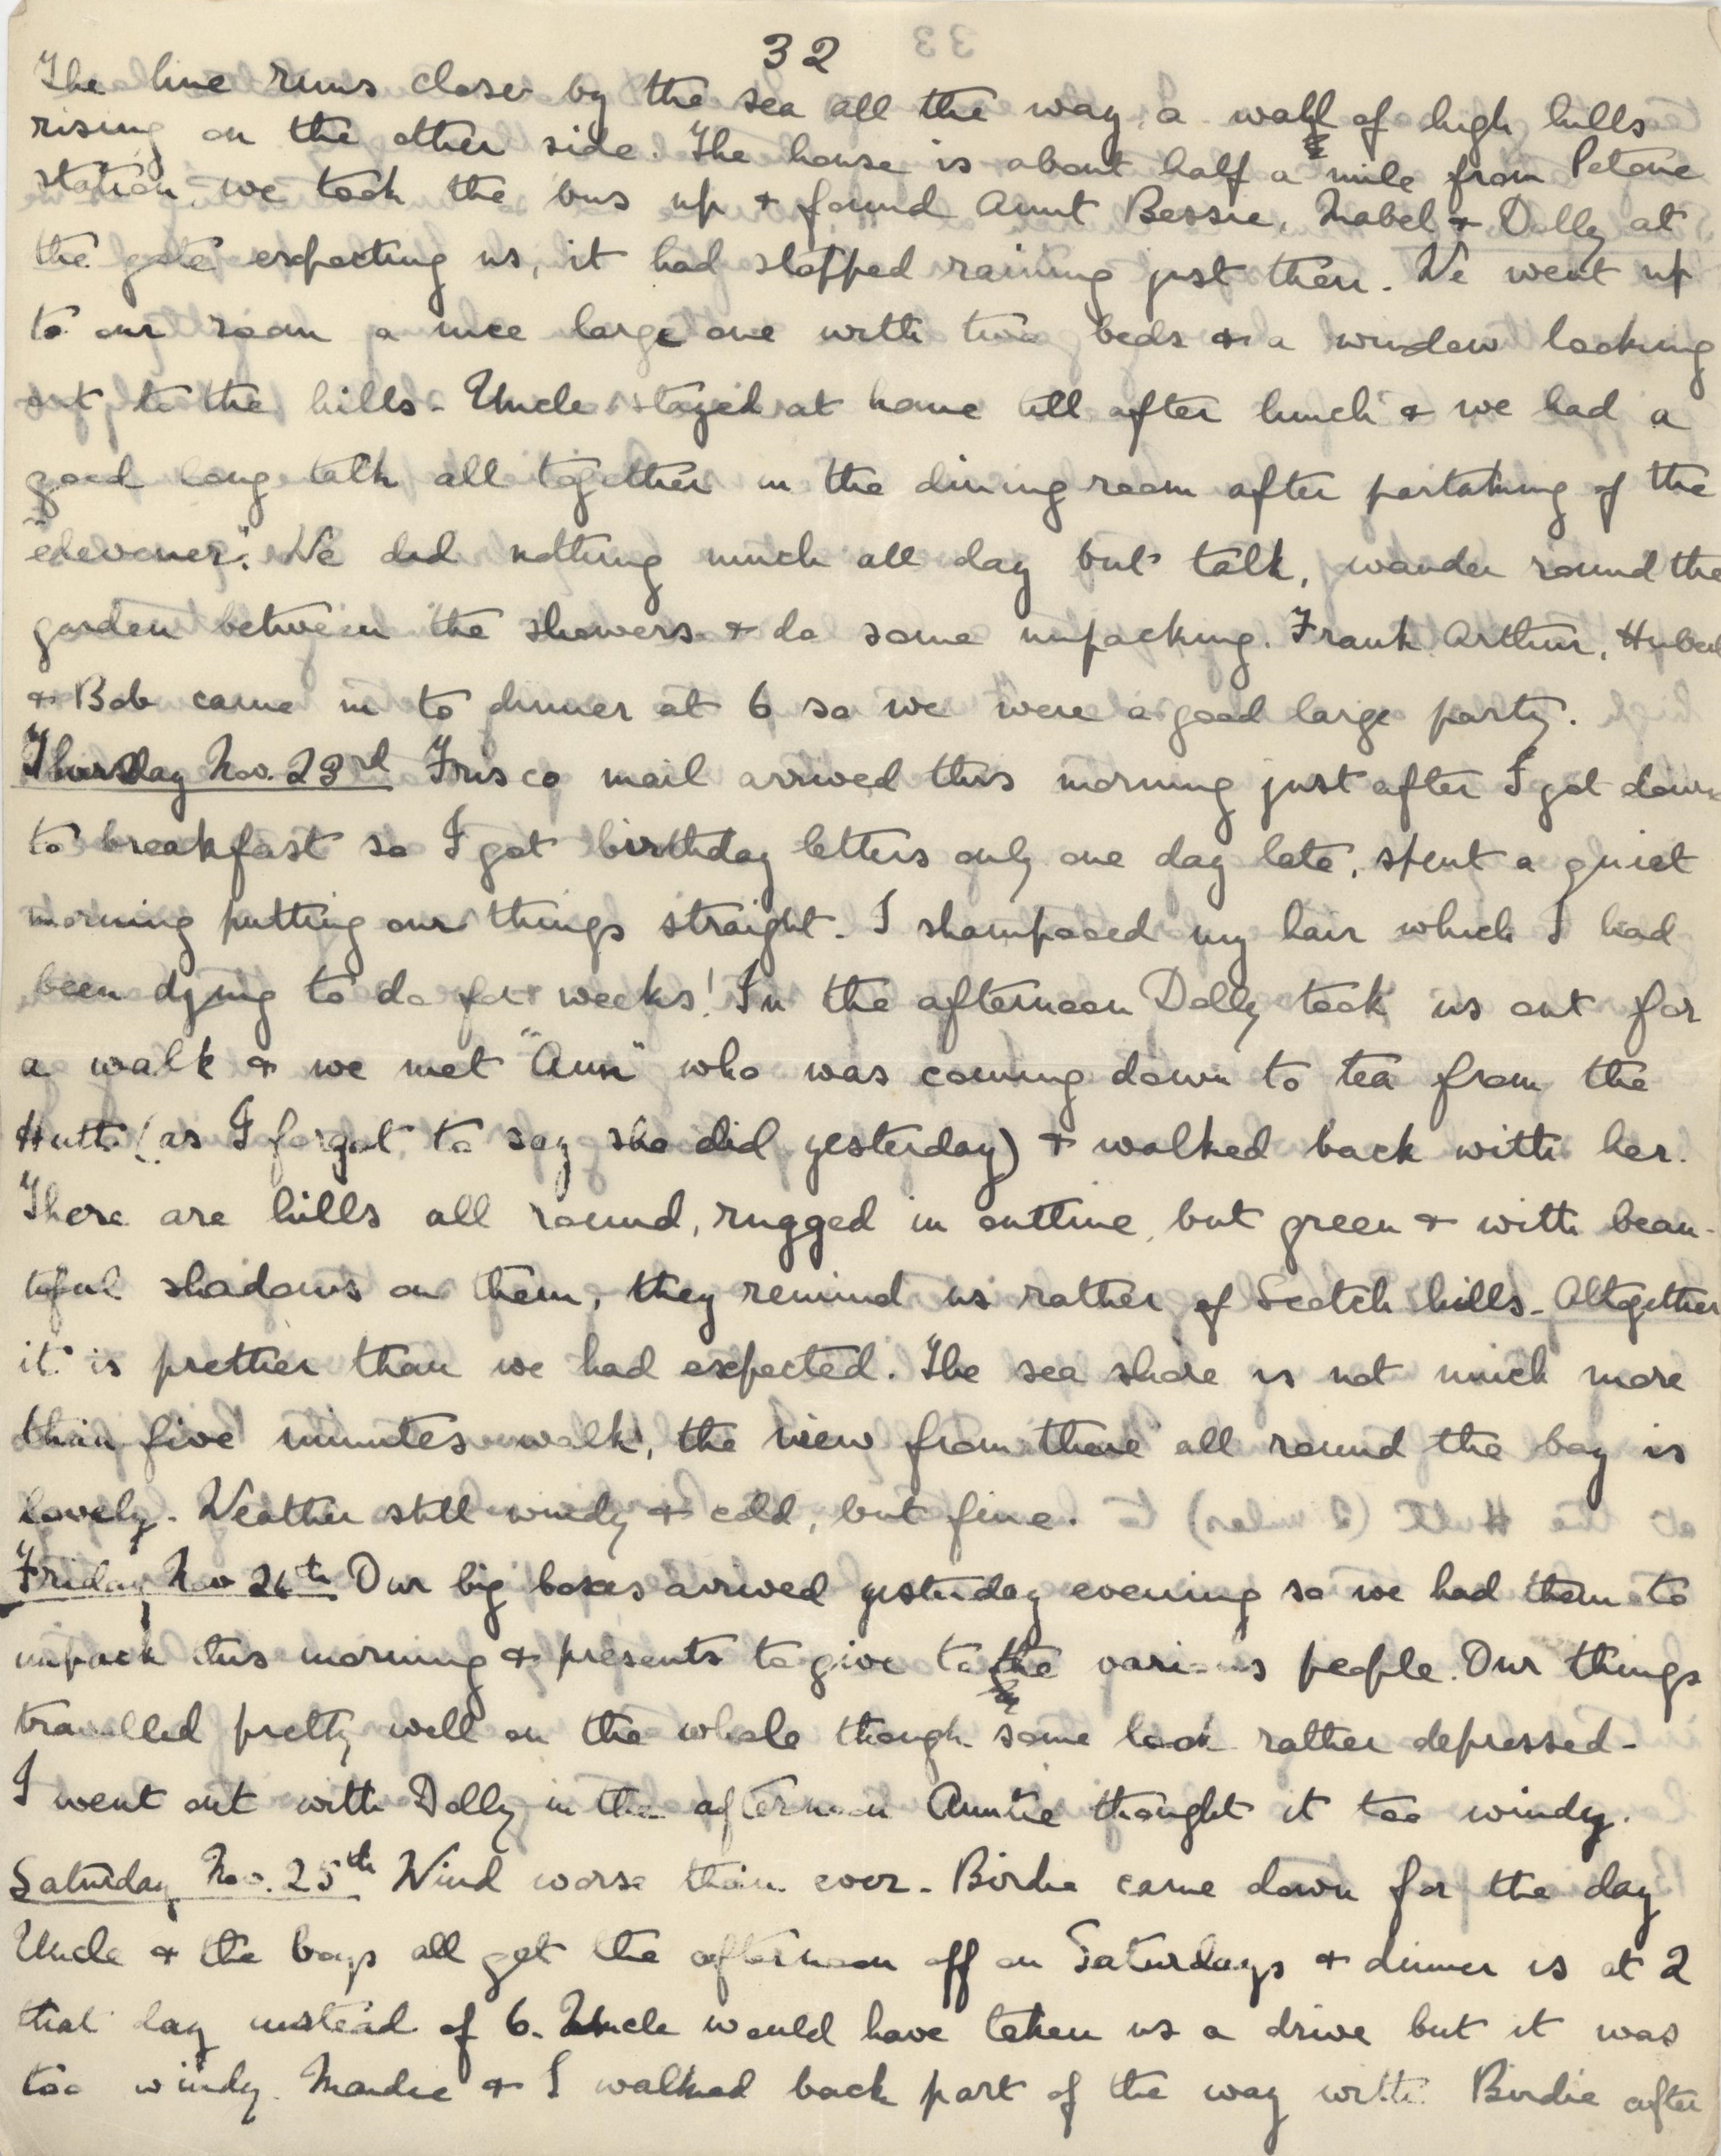 32
The line runs close by the sea all the way, a wall of high hills
rising on the other side. The house is about half a mile from Petone
station, we took the bus up & found Aunt Bessie, Mabel & Dolly at
the gate expecting us, it had stopped raining just then. We went up
to our room a nice large one with two beds & a window looking
out to the hills. Uncle stayed at home till after lunch & we had a
good long talk all together in the dining room after partaking of the
"elevener". We did nothing much all day but talk, wander round the
garden between the showers & do some unpacking. Frank, Arthur, Hubert
& Bob came in to dinner at 6 so we were a good large party.
Thursday Nov. 23rd Frisco mail arrived this morning just after I got down
to breakfast so I got birthday letters only one day late, spent a quiet
morning putting our things straight. I shampooed my hair which I had
been dying to do for weeks! In the afternoon Dolly took us out for
a walk & we met "Aun" who was coming down to tea from the
Hutt (as I forgot to say she did yesterday) & walked back with her.
There are hills all round, rugged in outline, but green & with beau-
tiful shadows on them, they remind us rather of Scotch hills. Altogether
it is prettier than we had expected. The sea shore is not much more
than five minutes walk, the view from there all round the bay is
lovely. Weather still windy & cold, but fine.
Friday Nov 24th Our big boxes arrived yesterday evening so we had them to
unpack this morning & presents to give to the various people. Our things
travelled pretty well on the whole though some look rather depressed.
I went out with Dolly in the afternoon Auntie thought it too windy.
Saturday Nov. 25th Wind worse than ever. Birdie came down for the day
Uncle & the boys all get the afternoon off on Saturdays & dinner is at 2
that day instead of 6. Uncle would have taken us a drive but it was
too windy. Maudie & I walked back part of the way with Birdie after